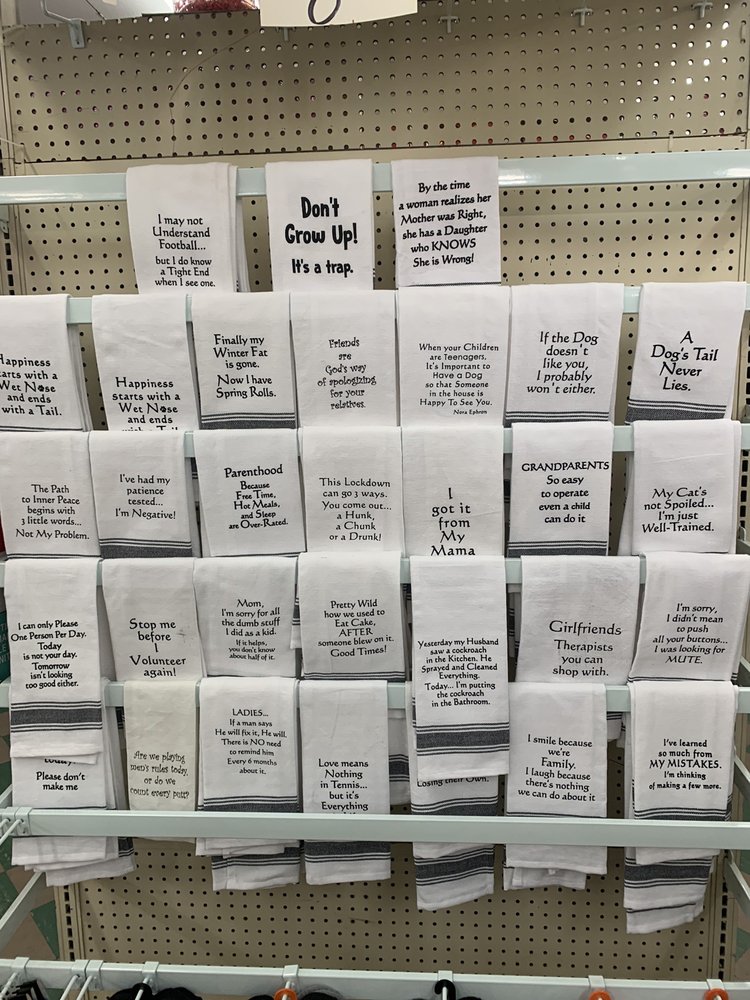 I may not
Understand
Football...
but i do know
a Tight End
when I see one.
Don't
Grow Up!
It's a trap.
By the time
a woman realizes her
Mother was Right,
she has a Daughter
who KNOWS
She is Wrong!
Happiness
starts with a
Wet Nose
and ends
with a Tail.
Happiness
starts with a
Wet Nose
and ends
Finally my
Winter Fat
is gone.
Now I have
Spring Rolls.
Friends
are
God's way
of apologizing
for your
relatives.
When your Children
are Teenagers,
It's Important to
Have a Dog
so that Someone
in the house is
Happy To See You.
Nora Ephron
If the Dog
doesn't
like you,
I probably
won't either.
A
Dog's Tail
Never
Lies.
The Path
to Inner Peace
begins with
3 little words...
Not My Problem.
I've had my
patience
tested...
I'm Negative!
Parenthood
Because
Free Time,
Hot Meals,
and Sleep
are Over-Rated.
This Lockdown
can go 3 ways.
You come out...
a Hunk,
a Chunk
or a Drunk!
I
got it
from
My
Mama
GRANDPARENTS
So easy
to operate
even a child
can do it
My Cat's
not Spoiled...
I'm just
Well-Trained.
I can only Please
One Person Per Day.
Today
is not your day.
Tomorrow
isn't looking
too good either.
Stop me
before
I
Volunteer
again!
Mom,
I'm sorry for all
the dumb stuff
I did as a kid.
If it helps,
you don't know
about half of it.
Pretty Wild
how we used to
Eat Cake,
AFTER
someone blew on it.
Good Times!
Yesterday my Husband
saw a cockroach
in the Kitchen. He
Sprayed and Cleaned
Everything.
Today... I'm putting
the cockroach
in the Bathroom.
Girlfriends
Therapists
you can
shop with.
I'm sorry,
I didn't mean
to push
all your buttons...
I was looking for
MUTE.
Please don't
make me
Are we playing
men's rules today,
or do we
count every putt?
LADIES...
If a man says
He will fix it, He will.
There is NO need
to remind him
Every 6 months
about it.
Love means
Nothing
in Tennis...
but it's
Everything
Losing their Own.
I smile because
we're
Family.
I laugh because
there's nothing
we can do about it
I've learned
so much from
MY MISTAKES.
I'm thinking
of making a few more.